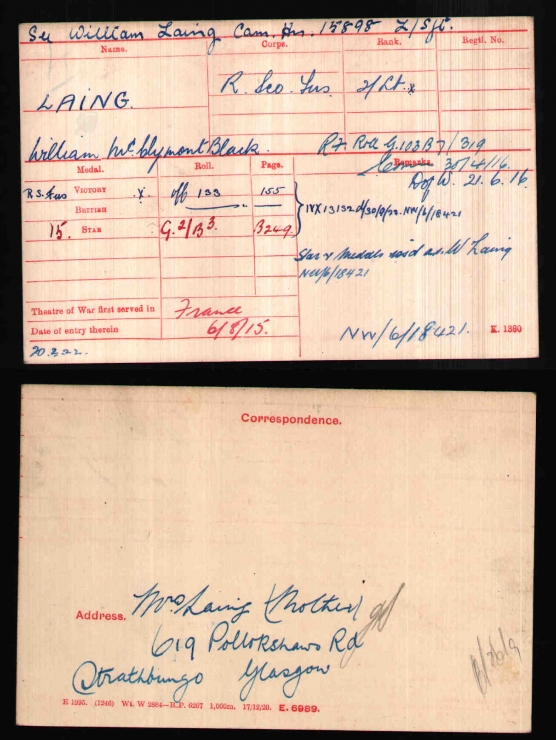 See William Laing Cam. Hrs. 15898 L/Sjt.
Name. Corps. Rank. Regtl. No.
LAING. R. Sco. Fus. 2/Lt. x
William McClymont Black. R.F. Roll G.103B7/319
Medal. Roll. Page. Remarks. 30/4/16.
R.S. Fus VICTORY x Off 133 155 D of W. 21.6.16.
BRITISH " "
15 STAR G.2/B3. 324a NW/6/18421
Star & Medals W Laing
NW/6/18421
Theatre of War first served in France
Date of entry therein 6/8/15. NW/6/18421. K. 1380
20.3.22.
Correspondence.
Address. Mrs Laing (Mother)
619 Pollokshaws Rd
Strathbungo Glasgow
E 1995. (1246) Wt. W 2884—R.P. 6207 1,000m. 17/12/20. E. 6989.